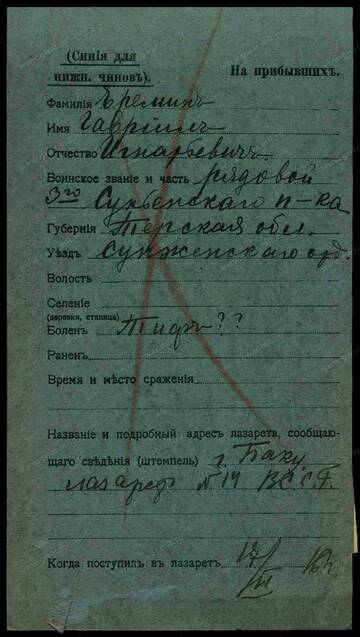 (Синія для
нижн. чиновъ).
На прибывшихъ.
Фамилія Ереминъ
Имя Гавріилъ
Отчество Игнатьевичъ
Воинское званіе и часть рядовой
3го Сунженскаго п-ка
Губернія Терская обл.
Уѣздъ Сунженскаго
Волость
Селеніе
(деревня, станица)
Боленъ Тифъ??
Раненъ
Время и мѣсто сраженія
Названіе и подробный адресъ лазарета, сообщаю-
щаго свѣдѣнія (штемпель) г. Баку
лазаретъ N 14 ВСС.Г.
Когда поступилъ въ лазаретъ 17/III 16г.